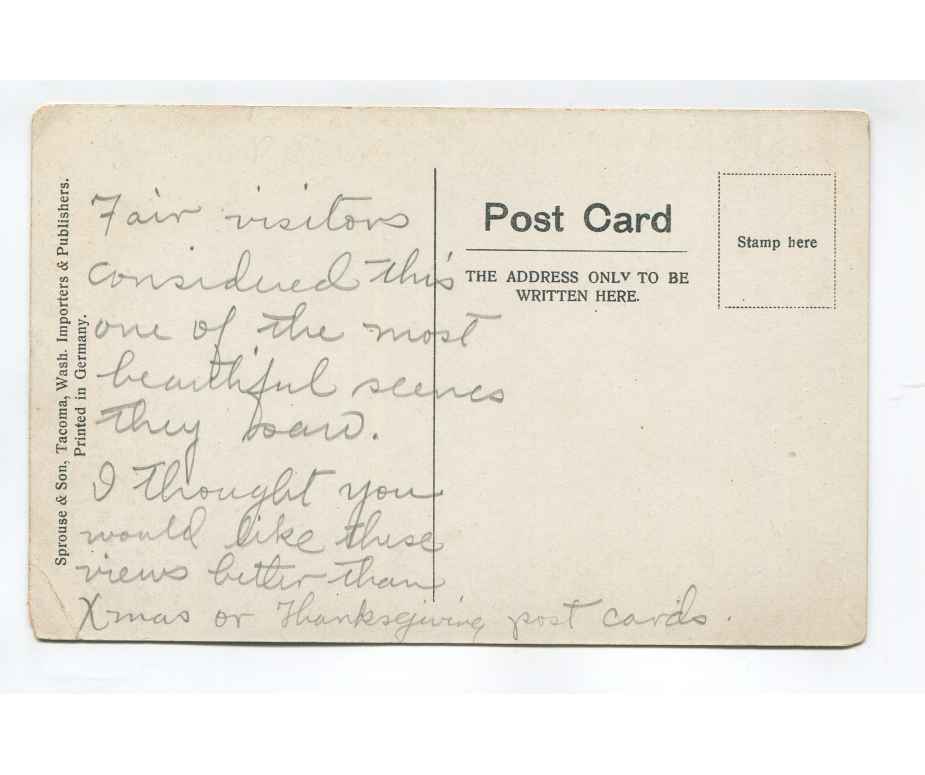 Sprouse & Son, Tacoma, Wash. Importers & Publishers.
Printed in Germany.
Fair visitors
considered this
one of the most
beautiful scenes
they saw.
I thought you
would like these
views better than
Xmas or Thanksgiving post cards.
Post Card
THE ADDRESS ONLY TO BE
WRITTEN HERE.
Stamp here